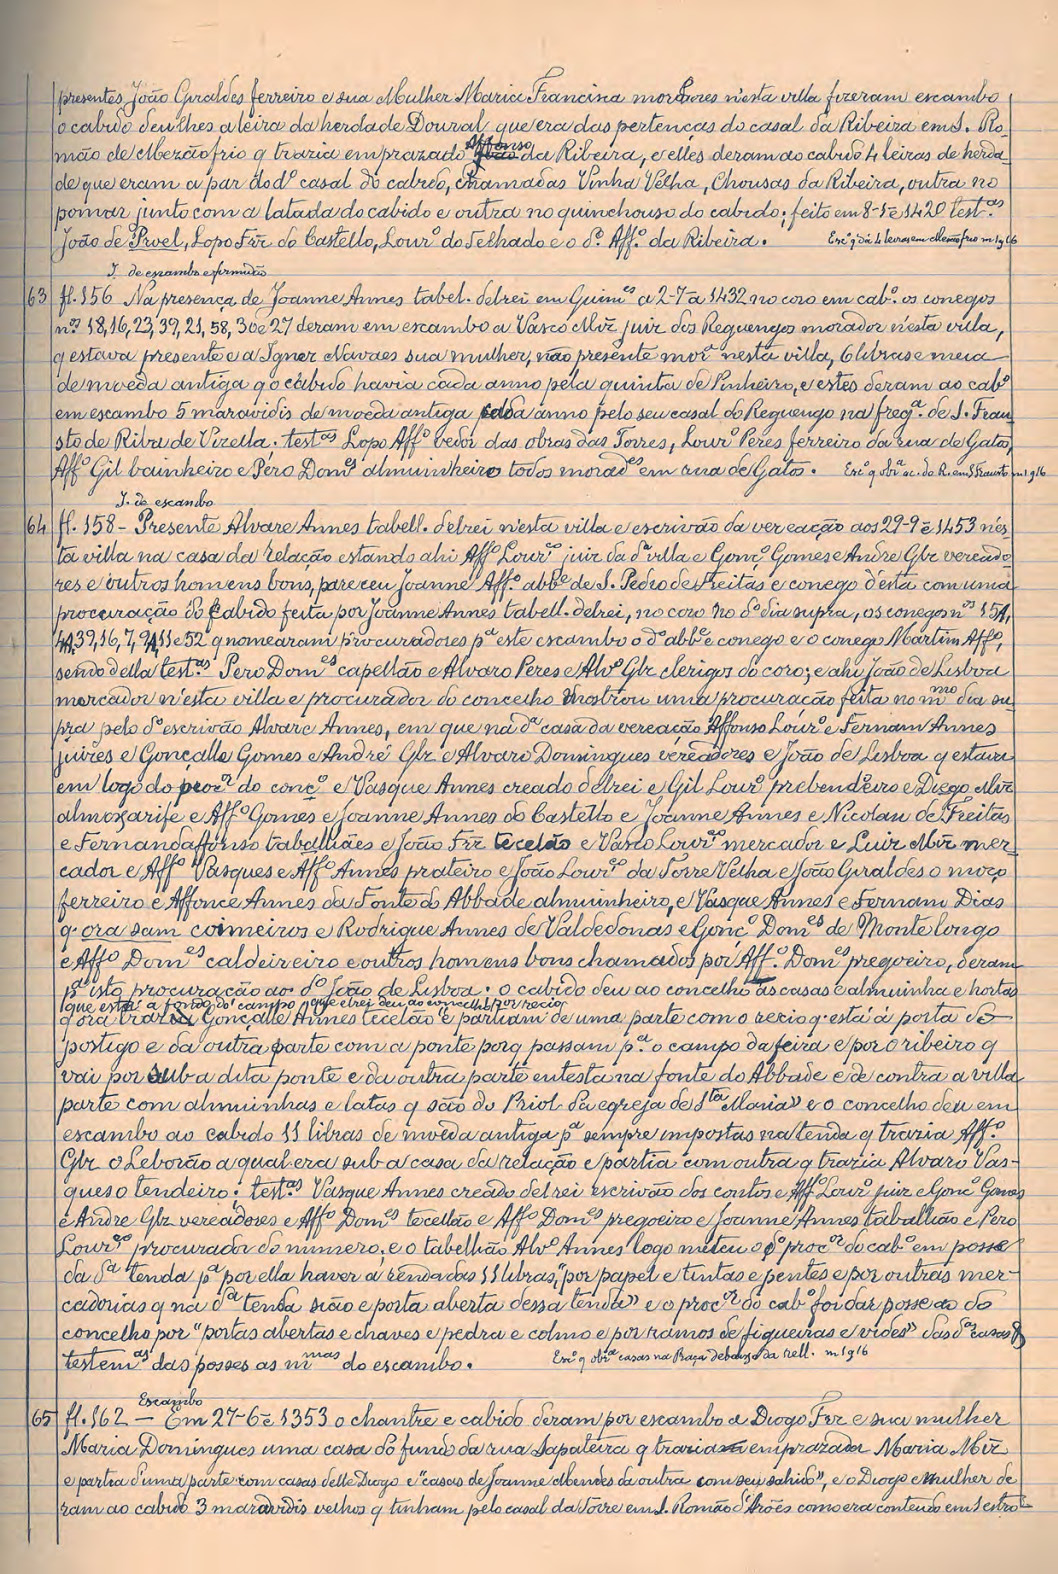 presentes João Giraldes ferreiro e sua Mulher Maria Francisca moradores n'esta villa fizeram escambo
o cabido deu-lhes a leira da herdade Doural que era das pertenças do casal da Ribeira em S. Ro-
mão de Mezãofrio q trazia emprazado Affonso da Ribeira, e elles deram ao cabido 4 leiras de herda-
de que eram a par do dº casal do cabido, chamadas Vinha Velha, Chousas da Ribeira, outra no
pomar junto com a latada do cabido e outra no quinchouso do cabido; feito em 8-1-é 1420 test.as
João de Proel, Lopo Frz do Castello, Lour.º do Selhado e o dº Aff.º da Ribeira. Esc.º q dá 4 leiras em Mesãofrio m 1916
I. de escambo e firmidão
63 fl. 156 Na presença de Joanne Annes tabel. delrei em Guim.es a 2-7-a 1432 no coro em cab.º os conegos
n.os 18, 16, 23, 39, 21, 58, 30 e 27 deram em escambo a Vasco Mrz juiz dos Reguengos morador n'esta villa,
q estava presente e a Ignez Navaes sua mulher, não presente mor.a nesta villa, 6 libras e meia
de moeda antiga q o cabido havia cada anno pela quinta de Pinheiro, e estes deram ao cab.º
em escambo 5 maravidis de moeda antiga cada anno pelo seu casal do Reguengo na freg.a de S. Frau-
sto de Riba de Vizella; test.as Lopo Aff.º vedor das obras das Torres, Lour.º Peres ferreiro da rua de Gatos,
Aff.º Gil bainheiro e Pero Dom.es almuinheiro todos morad.es em rua de Gatos. Esc.º q obr.a ac. do R. em S. Frausto m 1916
I. de escambo
64 fl. 158 - Presente Alvare Annes tabell. delrei n'esta villa e escrivão da vereação aos 29-9-é 1453 n'es-
ta villa na casa da relação estando ahi Aff.º Lour.º juiz da d.a villa e Gonç.º Gomes e Andre Glz vereado-
res e outros homens bons, pareceu Joanne Aff.º abb.e de S. Pedro de Freitas e conego d'esta com uma
procuração do Cabido feita por Joanne Annes tabell. delrei, no coro no dº dia supra, os conegos n.os 15A,
39, 16, 7, 9A, 11 e 52 q nomearam procuradores p.a este escambo o dº abb.e e conego e o conego Martim Aff.º,
sendo della test.as Pero Dom.es capellão e Alvaro Peres e Alv.º Glz clerigos do coro; e ahi João de Lisboa
mercador n'esta villa e procurador do concelho mostrou uma procuração feita no m.mo dia su-
pra pelo dº escrivão Alvare Annes, em que na d.a casa da vereação Affonso Lour.º e Fernam Annes
juizes e Gonçallo Gomes e André Glz e Alvaro Domingues vereadores e João de Lisboa q estava
em logo do proc.or do conç.º e Vasque Annes creado delrei e Gil Lour.º prebendeiro e Diego Mrz
almoxarife e Aff.º Gomes e Joanne Annes do Castello e Joanne Annes e Nicolau de Freitas
e Fernandaffonso tabaliães e João Frz tecelão e Vasco Lour.º mercador e Luiz Mrz mer-
cador e Aff.º Vasques e Aff.º Annes prateiro e João Lour.º da Torre Velha e João Giraldes o moço
ferreiro e Affonce Annes da Fonte do Abbade almuinheiro, e Vasque Annes e Fernam Dias
q. ora sam coimeiros e Rodrigue Annes de Valdedonas e Gonç.º Dom.es de Montelongo
e Aff.º Dom.es caldeireiro e outros homens bons chamados por Aff.º Dom.es pregoeiro, deram
p.a isto procuração ao dº João de Lisboa: o cabido deu ao concelho as casas e almuinha e hortas
(que está a fondo do campo que elrei deu ao concelho por recio)
q ora trazia Gonçalle Annes tecelão "e partiam de uma parte com o recio q está á porta do
postigo e da outra parte com a ponte por q passam p.a o campo da feira e por o ribeiro q
vai por sub a dita ponte e da outra parte entesta na fonte do Abbade e de contra a villa
parte com almuinhas e latas q são do Priol da egreja de S.ta Maria" e o concelho deu em
escambo ao cabido 11 libras de moeda antiga p.a sempre impostas na tenda q trazia Aff.º
Glz o Leborão a qual era sub a casa da relação e partia com outra q trazia Alvaro Vas-
ques o tendeiro; test.as Vasque Annes creado delrei escrivão dos contos e Aff.º Lour.º juiz e Gonç.º Gomes
e Andre Glz vereadores e Aff.º Dom.es tecellão e Aff.º Dom.es pregoeiro e Joanne Annes tabalião e Pero
Lour.º procurador do numero; e o tabellião Alv.º Annes logo meteu o dº proc.or do cab.º em posse
da d.a tenda p.a por ella haver a renda das 11 libras, "por papel e tintas e pentes e por outras mer-
cadorias q na d.a tenda sião e porta aberta dessa tenda" e o proc.or do cab.º foi dar posse ao do
concelho por "portas abertas e chaves e pedra e colmo e por ramos de figueiras e vides" das d.as casas &
testem.as das posses as m.mas do escambo. Esc.º q obr.a casas na Praça debaixo da rell. m 1916
Escambo
65 fl. 162 - Em 27-6-é 1353 o chantre e cabido deram por escambo a Diogo Frz e sua mulher
Maria Domingues uma casa do fundo da rua Sapateira q trazia emprazada Maria Mrz
e partia d'uma parte com casas delle Diogo e "casas de Joanne Mendes da outra com seu sahido", e o Diogo e mulher de-
ram ao cabido 3 maravidis velhos q tinham pelo casal da Torre em S. Romão d'Arões como era contendo em 1 estro-